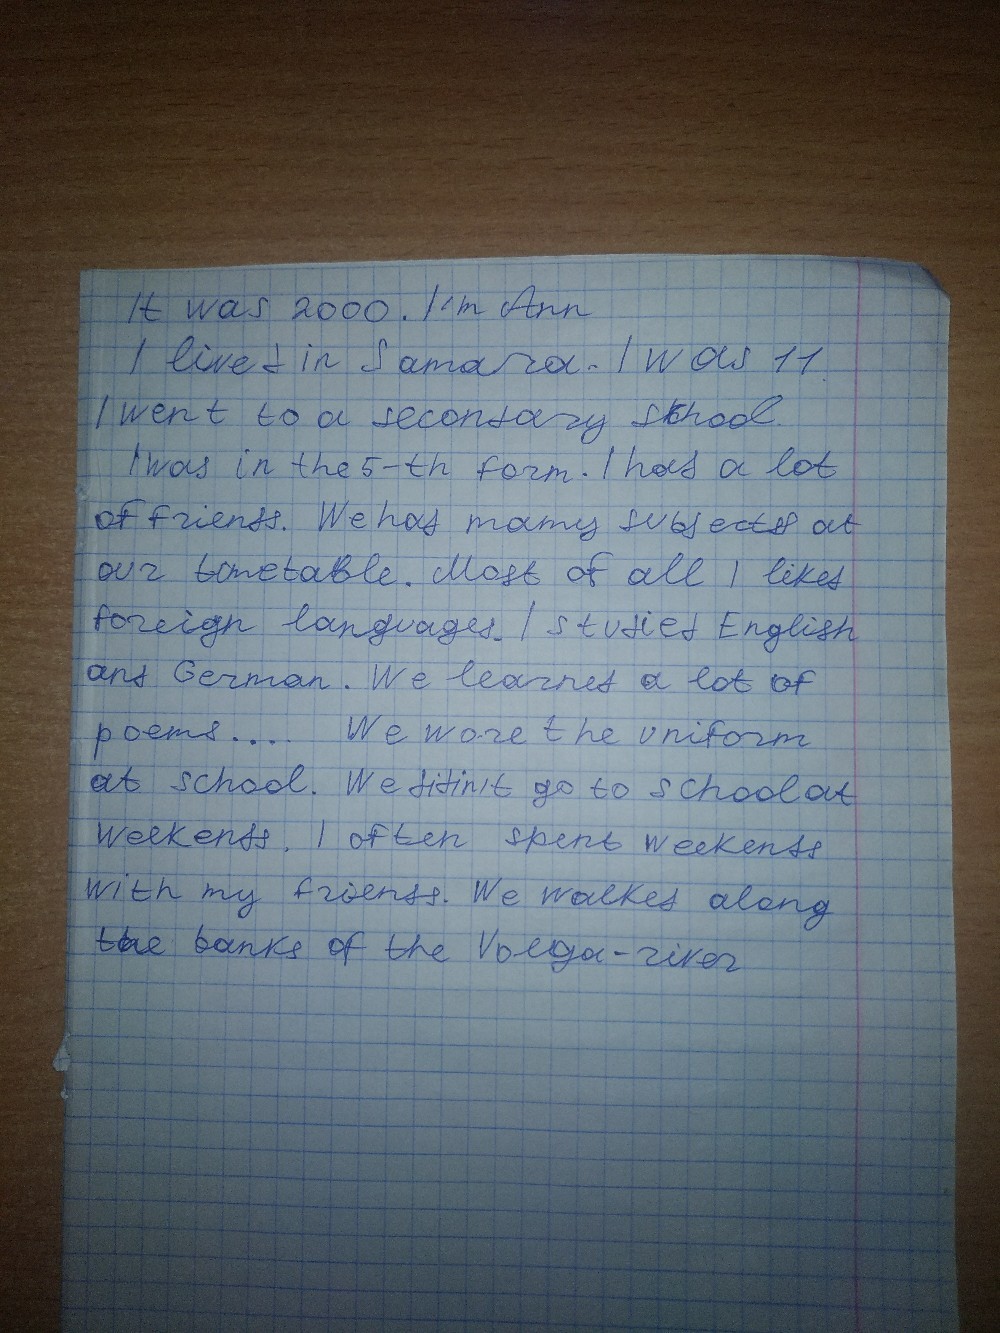 It was 2000. I'm Ann
I lived in Samara. I was 11.
I went to a secondary school.
I was in the 5-th form. I had a lot
of friends. We had mamy subjects at
our timetable. Most of all I liked
foreign languages. I studied English
and German. We learned a lot of
poems.... We wore the uniform
at school. We didin't go to school at
weekends. I often spent weekends
with my friends. We walked along
the banks of the Volga-river